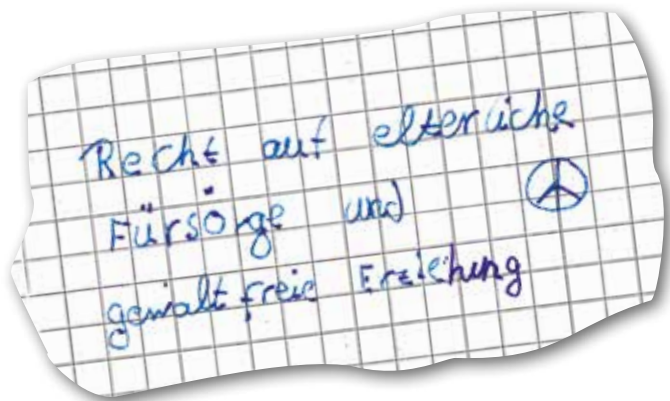 Recht auf elterliche
Fürsorge und
gewaltfreie Erziehung